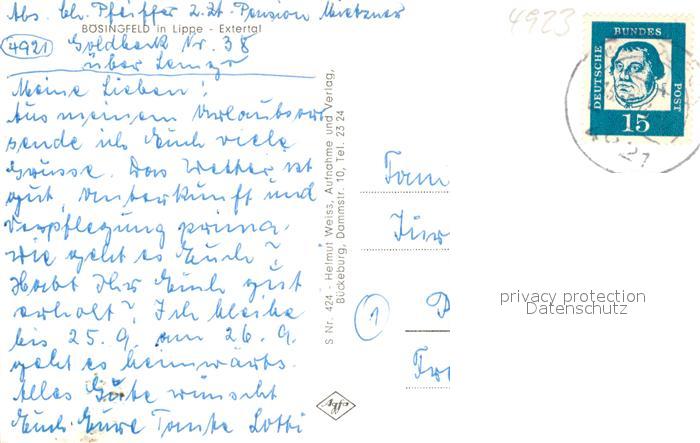 Abs. Ch. Pfeiffer z. Zt. Pension Mietzner
4923
BÖSINGFELD in Lippe - Extertal
4921 Goldbeck Nr. 38
über Lemgo
Meine Lieben!
Aus meinem Urlaubsort
sende ich Euch viele
Grüsse. Das Wetter ist
gut, Unterkunft und
Verpflegung prima.
Wie geht es Euch?
Habt Ihr Euch gut
erholt? Ich bleibe
bis 25.9. am 26.9.
geht es heimwärts.
Alles Gute wünscht
Euch Eure Tante Lotti
S Nr. 424 - Helmut Weiss, Aufnahme und Verlag,
Bückeburg, Dammstr. 10, Tel. 23 24
Agfa
DEUTSCHE BUNDES POST
15
4921
Fam
1
privacy protection
Datenschutz